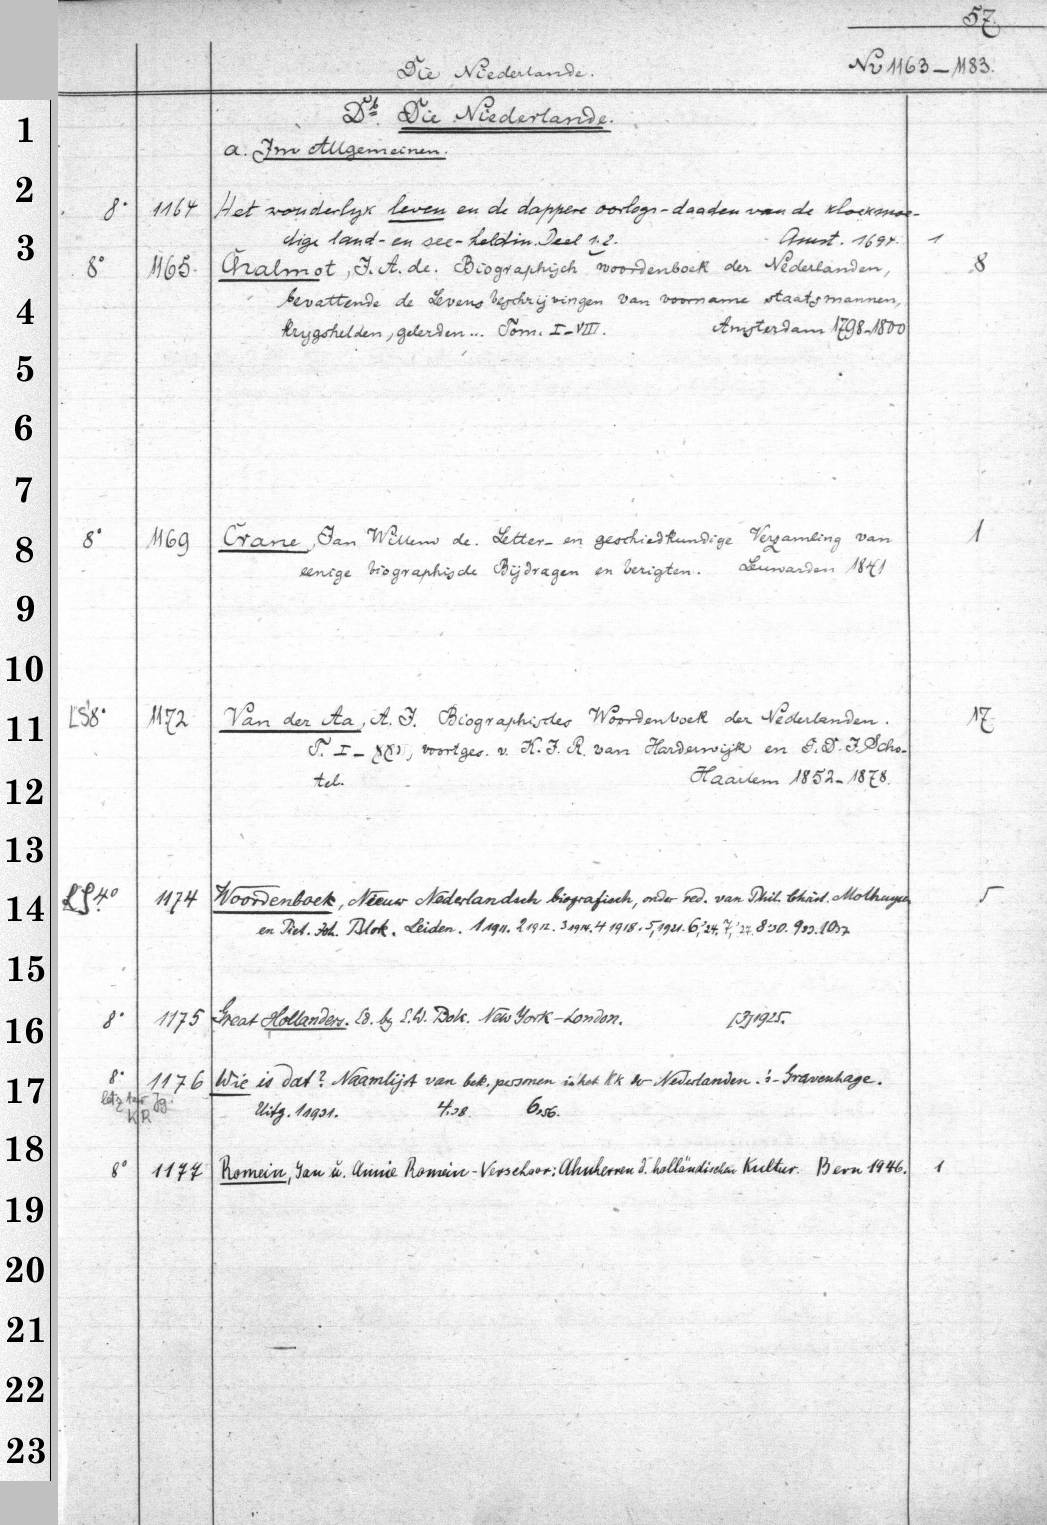 57.
Die Niederlande. No 1163-1183.
1
Db. Die Niederlande.
a. Im Allgemeinen.
2
8° 1164 Het wonderlyk leven en de dappere oorlogs-daaden van de kloekmoe-
3
dige land- en see-heldin. Deel 1.2. Amst. 1694. 1
8° 1165. Chalmot, J. A. de. Biographisch woordenboek der Nederlanden, 8
4
bevattende de Levens beschrijvingen van voorname staatsmannen,
krygshelden, gelerden... Tom. I-VIII. Amsterdam 1798-1800
5
6
7
8
8° 1169 Crane, Jan Willem de. Letter- en geschiedkundige Verzamling van 1
eenige biographische Bijdragen en berigten. Leuwarden 1841
9
10
11
LS 8° 1172 Van der Aa, A. J. Biographisches Woordenboek der Nederlanden. 17
T. I-XXI, voortges. v. K. J. R. van Harderwijk en G. D. J. Scho-
12
tel. Haarlem 1852-1878.
13
14
LS 4° 1174 Woordenboek, Nieuw Nederlandsch biografisch, onder red. van Phil. Christ. Molhuysen 5
en Piet. Joh. Blok. Leiden. 1 1911. 2 1912. 3 1914. 4 1918. 5, 1921. 6, '24. 7, '27. 8 '30. 9 33. 10 37
15
16
8° 1175 Great Hollanders. Ed. by E. W. Bok. New York-London. [3] 1925.
17
8° 1176 Wie is dat? Naamlijst van bek. personen in het Kk der Nederlanden. 's-Gravenhage.
letzter Jg. KR
Uitg. 1 1931. 4.38. 6.56.
18
8° 1177 Romein, Jan u. Annie Romein-Verschoor: Ahnherren d. holländischen Kultur. Bern 1946. 1
19
20
21
22
23